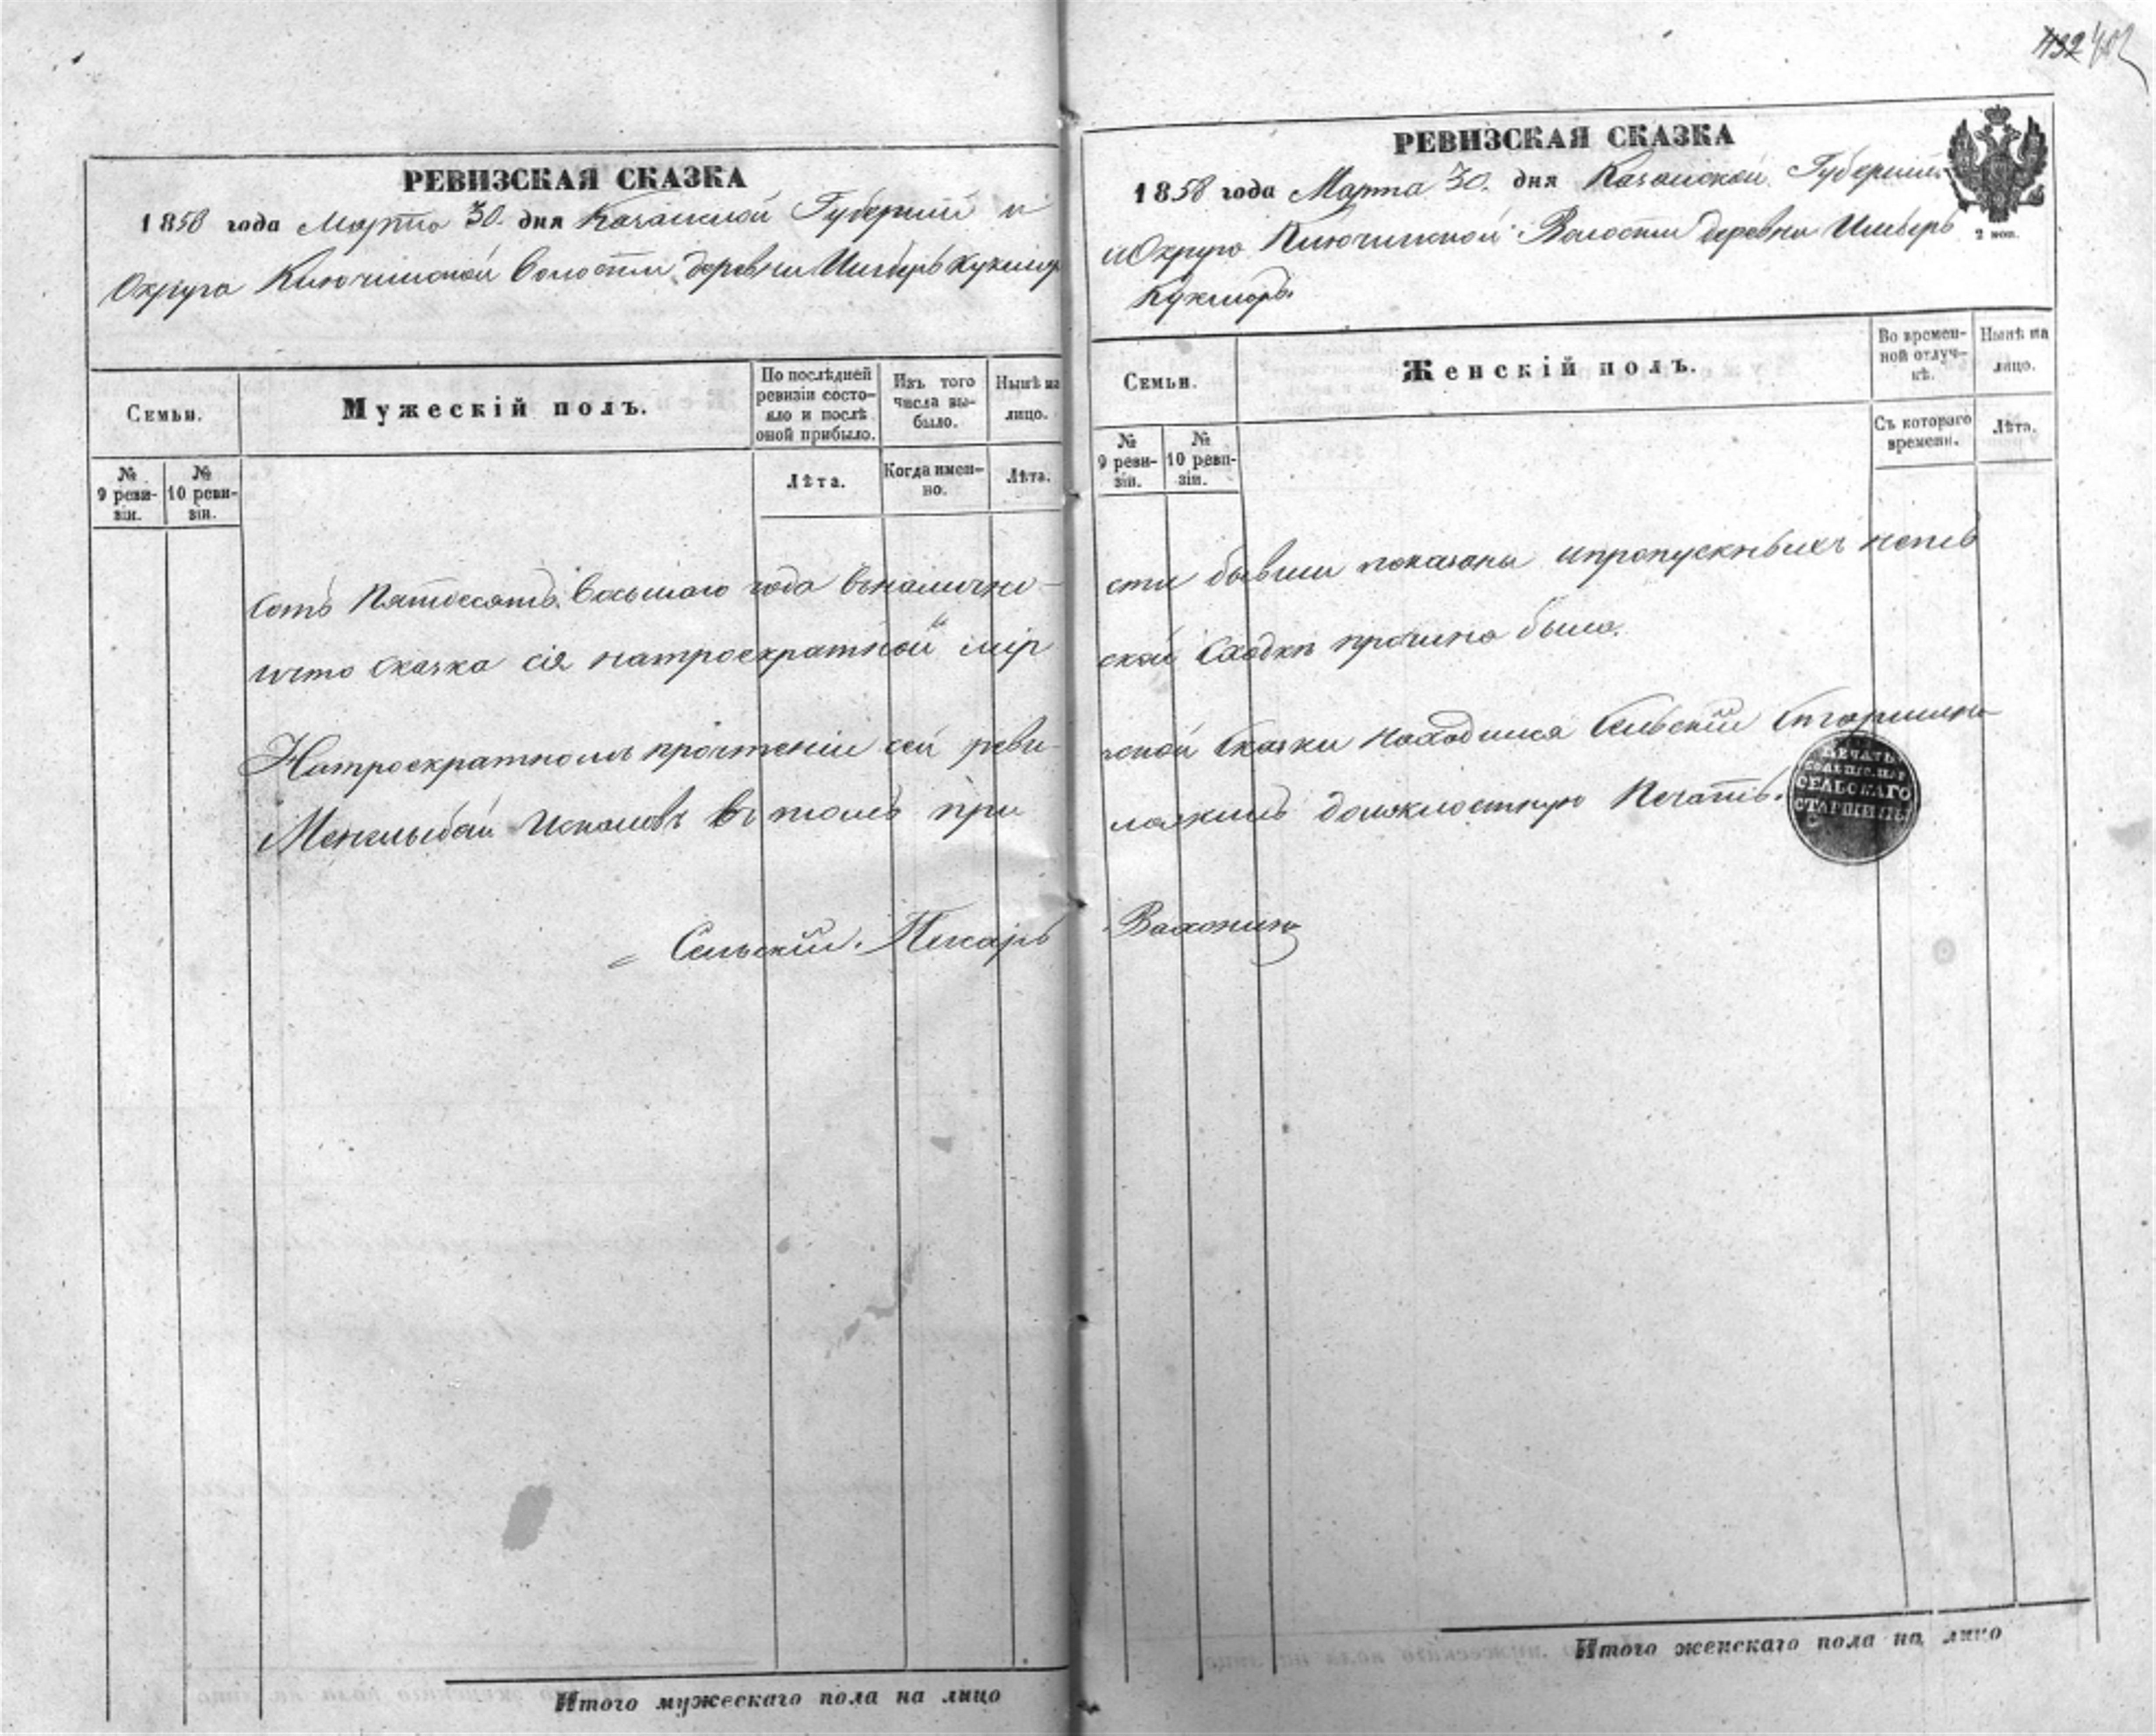 402
РЕВИЗСКАЯ СКАЗКА
1858 года Марта 30. дня Казанской Губерніи и
Округа Ключинской Волости деревни Иштерь Кукмор
Семьи.
Мужескій полъ.
По послѣдней ревизіи состояло и послѣ оной прибыло.
Изъ того числа выбыло.
Нынѣ на лицо.
№ 9 ревизіи.
№ 10 ревизіи.
Лѣта.
Когда именно.
Лѣта.
сотъ Пятдесятъ Восьмаго года вналично-
что сказка сія натроекратной мір
Натроекратномъ прочтеніи сей реви-
въ томъ при
Сельскій Писарь
Итого мужескаго пола на лицо
РЕВИЗСКАЯ СКАЗКА
1858 года Марта 30. дня Казанской Губерніи
и Округа Ключинской Волости деревни
Кукморъ.
2 коп.
Семьи.
Женскій полъ.
Во временной отлучкѣ.
Нынѣ на лицо.
№ 9 ревизіи.
№ 10 ревизіи.
Съ котораго времени.
Лѣта.
сти бывши показаны ипропускныхъ
ской Сходкѣ была.
зской Сказки находился Сельскій Старшина
ложилъ должностную Печать.
ПЕЧАТЬ
СЕЛЬСКАГО
СТАРШИНЫ
Итого женскаго пола на лицо